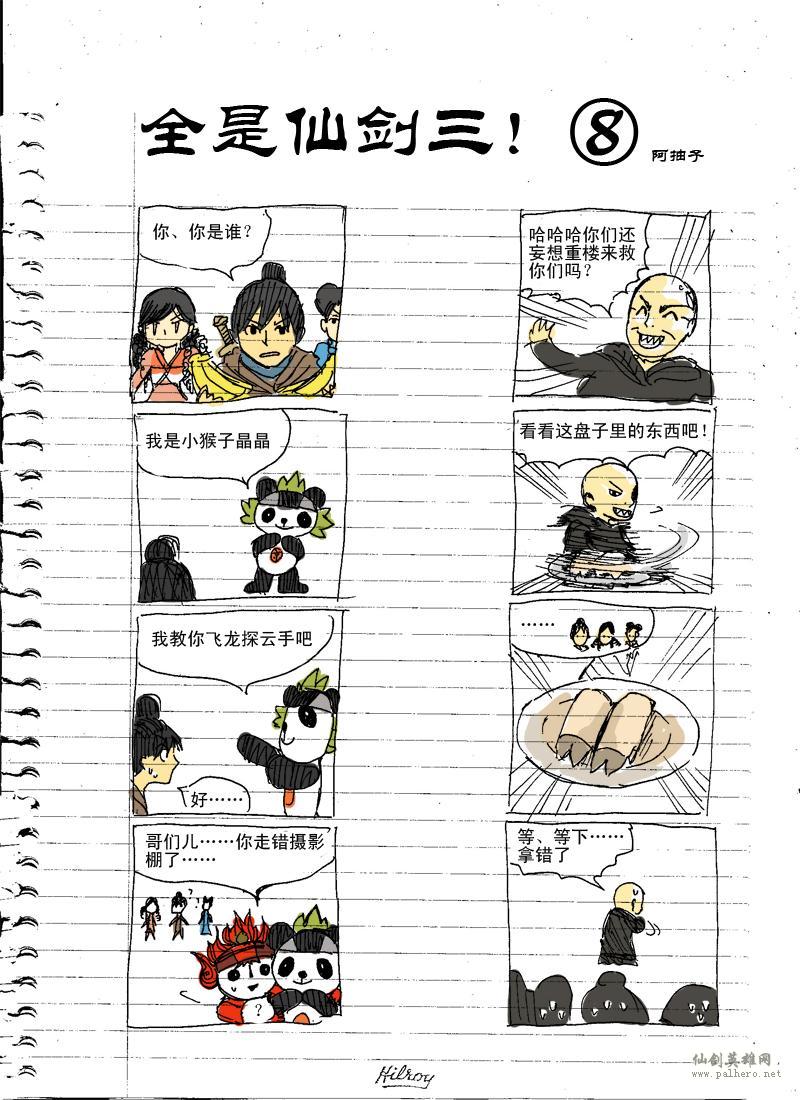 全是仙剑三！ ⑧ 阿抽子
你、你是谁？
我是小猴子晶晶
我教你飞龙探云手吧
好……
哥们儿……你走错摄影
棚了……
？
哈哈哈你们还
妄想重楼来救
你们吗？
看看这盘子里的东西吧！
……
等、等下……
拿错了
Hilroy
仙剑英雄网
www.palhero.net